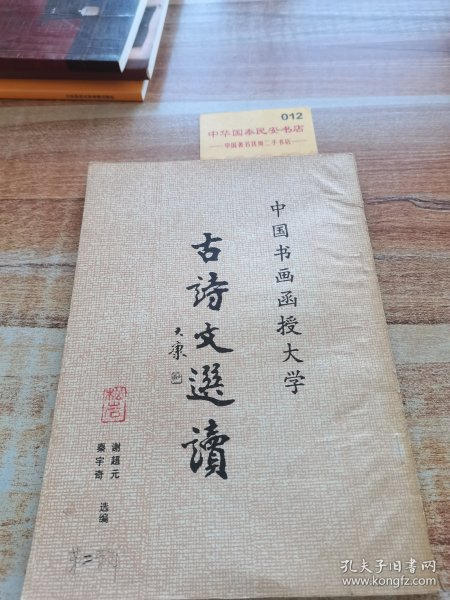 012
中华国泰民安书店
中国著名民间二手书店
中国书画函授大学
古詩文選讀
大康
松岩
谢超元
秦宇奇
选编
孔夫子旧书网
www.kongfz.com